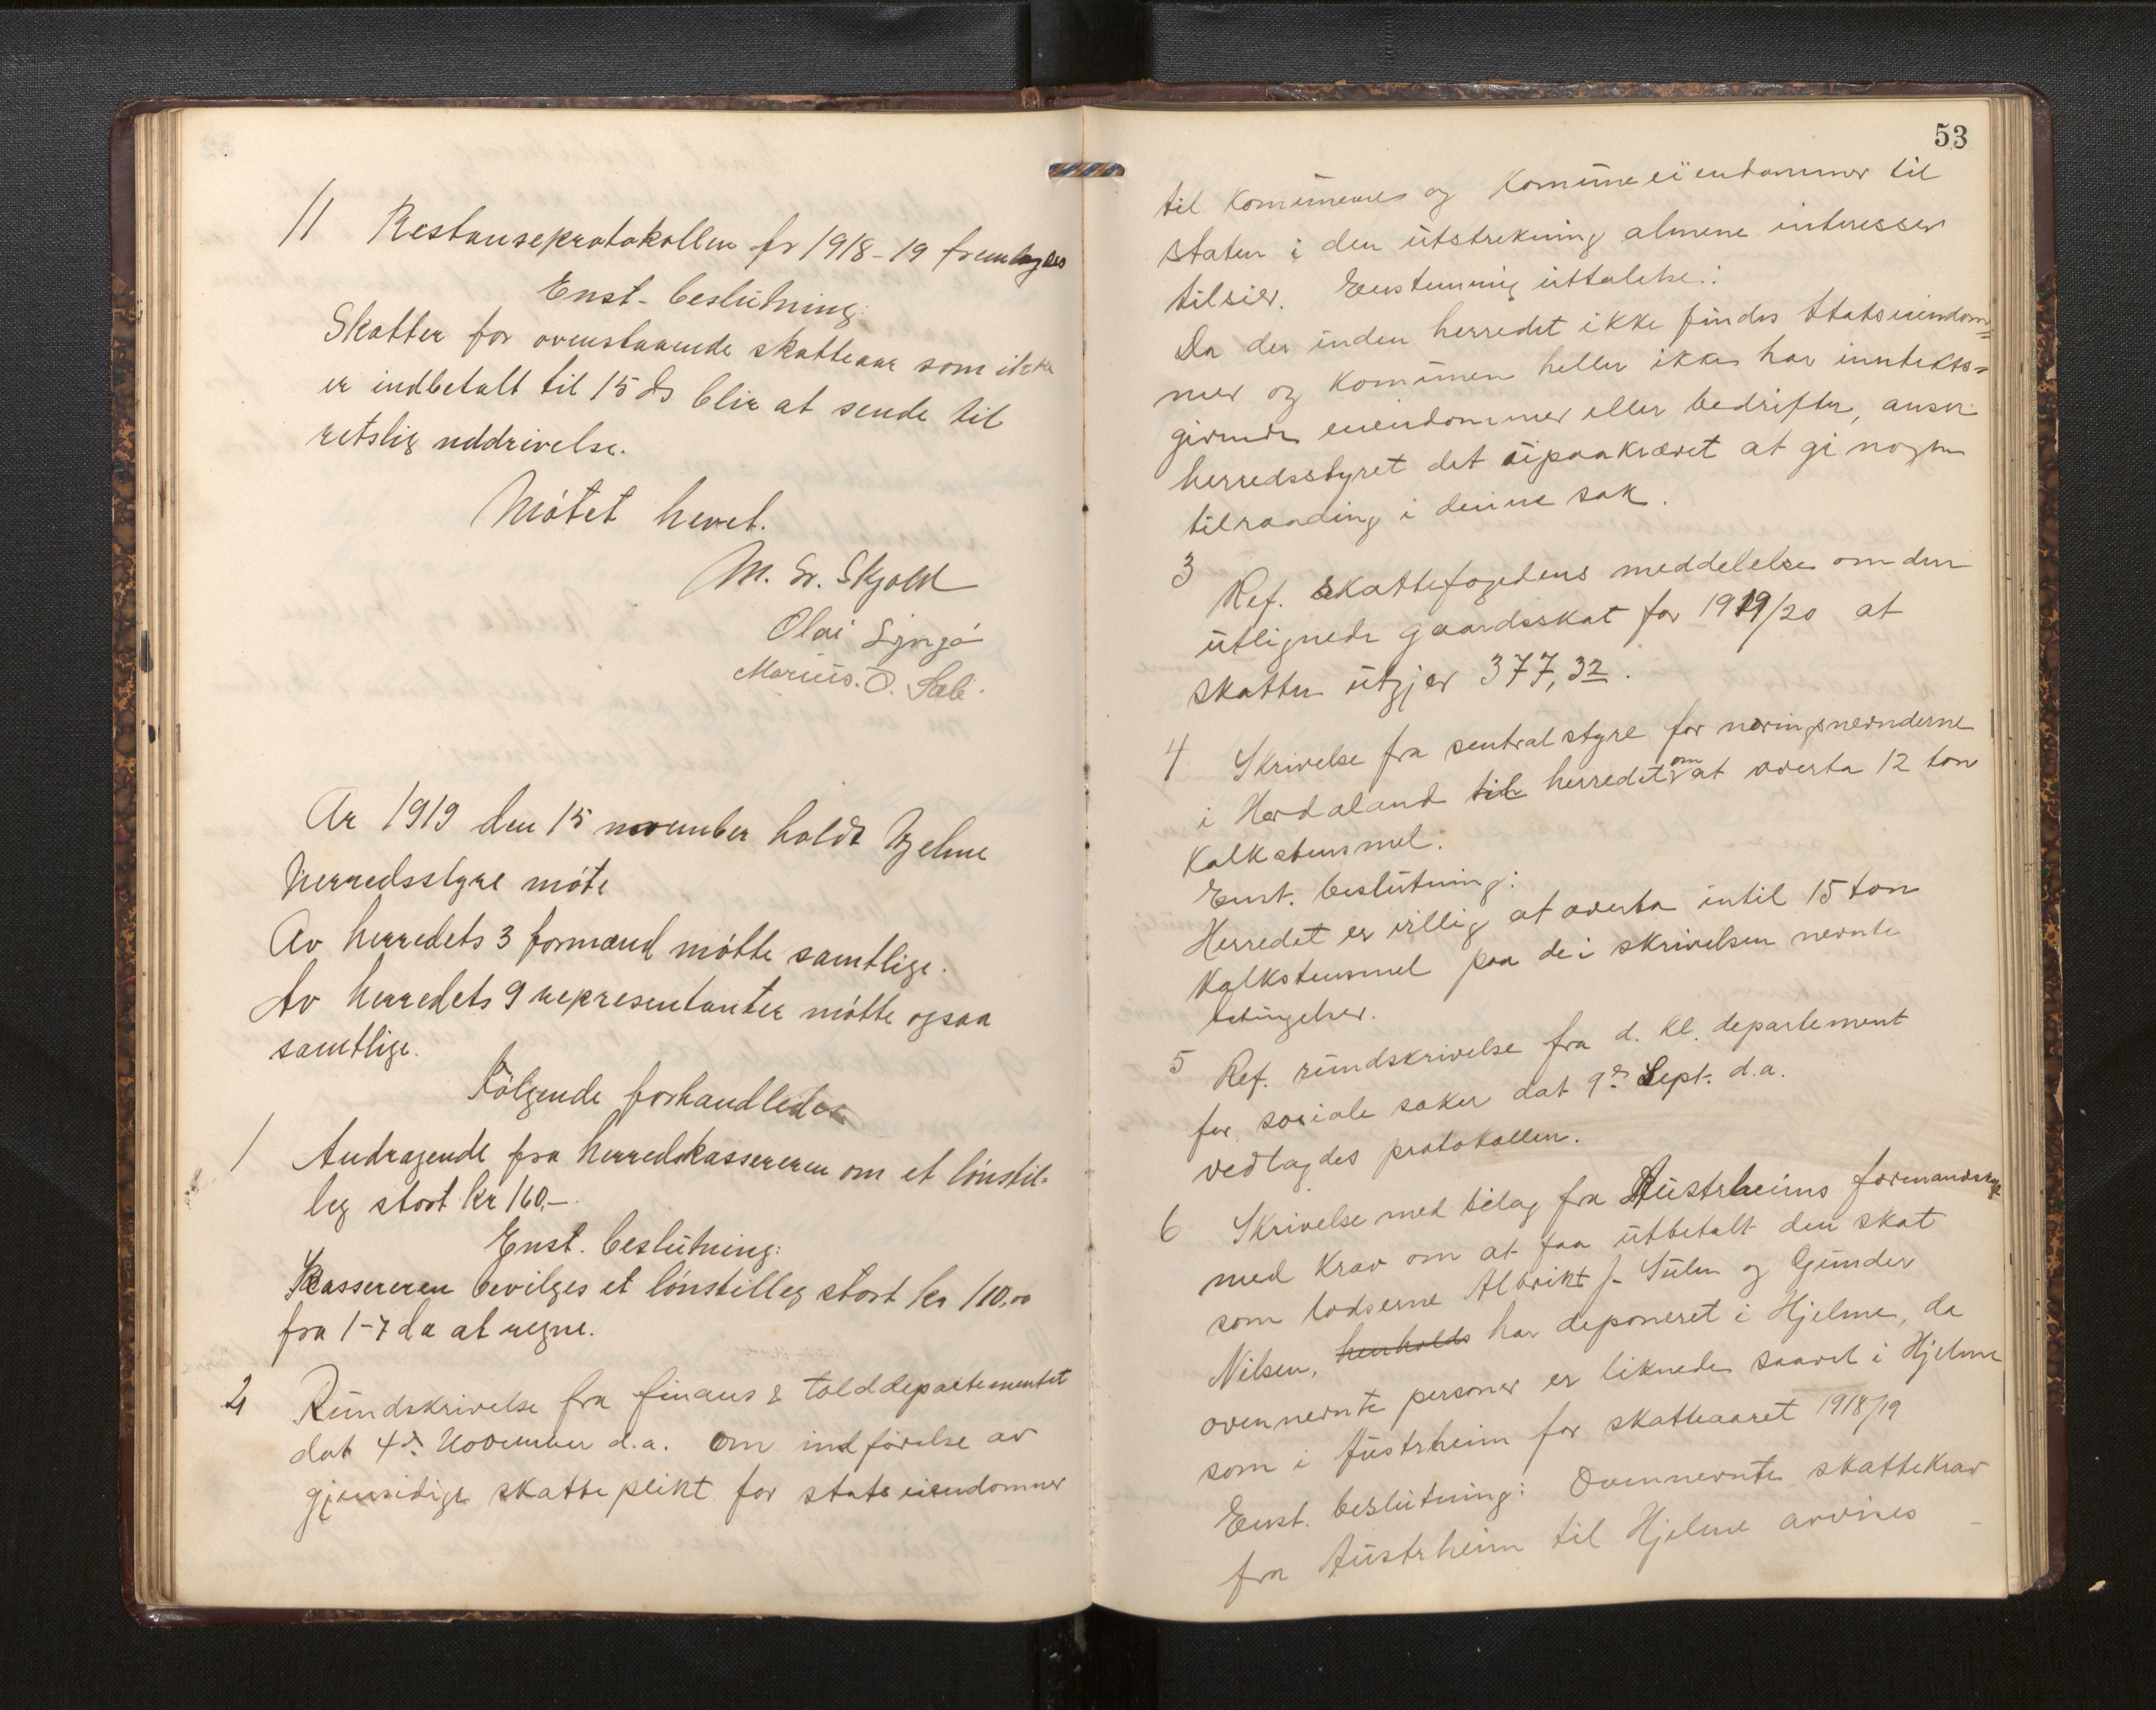 11 Restanseprotokollen fr 1918-19 fremlagdes
Enst. beslutning:
Skatter for ovenstaaende skatteaar som ikke
er indbetalt til 15 ds blir at sende til
retslig inddrivelse.
Møtet hevet.
M. Sr. Skjold
Olai
Marius. O. Sæle.
Ar 1919 den 15 november holdt Hjelme
herredsstyre møte
Av herredets 3 formænd møtte samtlige.
Av herredets 9 representanter møtte ogsaa
samtlige.
Følgende forhandledes
1 Andragende fra herredskassereren om et lønstil-
leg stort kr 160,-
Enst. beslutning:
Kassereren bevilges et lønstilleg stort kr 110,00
fra 1-7 da at regne.
2 Rundskrivelse fra finans & tolddepartementet
dat 4ds November d.a. om indførelse av
gjensidige skatteplikt for statseiendommer
53
til komunenes og komuneeiendommer til
staten i den utstrekning almene interesser
tilsier. Enstemmig uttalelse:
Da der inden herredet ikke findes Statseiendom=
mer og komunen heller ikke har inntekts=
givende eiendommer eller bedrifter, anser
herredsstyret det eipaakrævet at gi nogen
tilraading i denne sak.
3 Ref. skattefogedens meddelelse om den
utlignede gaardsskat for 1919/20 at
skatten utgjør 377,32.
4 Skrivelse fra sentralstyre for næringsnevnderne
i Hordaland til herredet om at overta 12 ton
Kalkstensmel.
Enst. beslutning:
Herredet er villig at overta intil 15 ton
Kalkstensmel paa de i skrivelsen nevnte
betingelser.
5 Ref. rundskrivelse fra d. kl. departement
for sociale saker dat 9ds Sept. d.a.
vedtagdes protokollen.
6 Skrivelse med bilag fra Austrheims formandskap
med krav om at faa utbetalt den skat
som lodserne Albrikt J. Sulen og Gunder
Nilsen, henholds har deponeret i Hjelme, da
ovennevnte personer er liknede saavel i Hjelme
som i Austrheim for skatteaaret 1918/19
Enst. beslutning: Ovennevnte skattekrav
fra Austrheim til Hjelme avvises